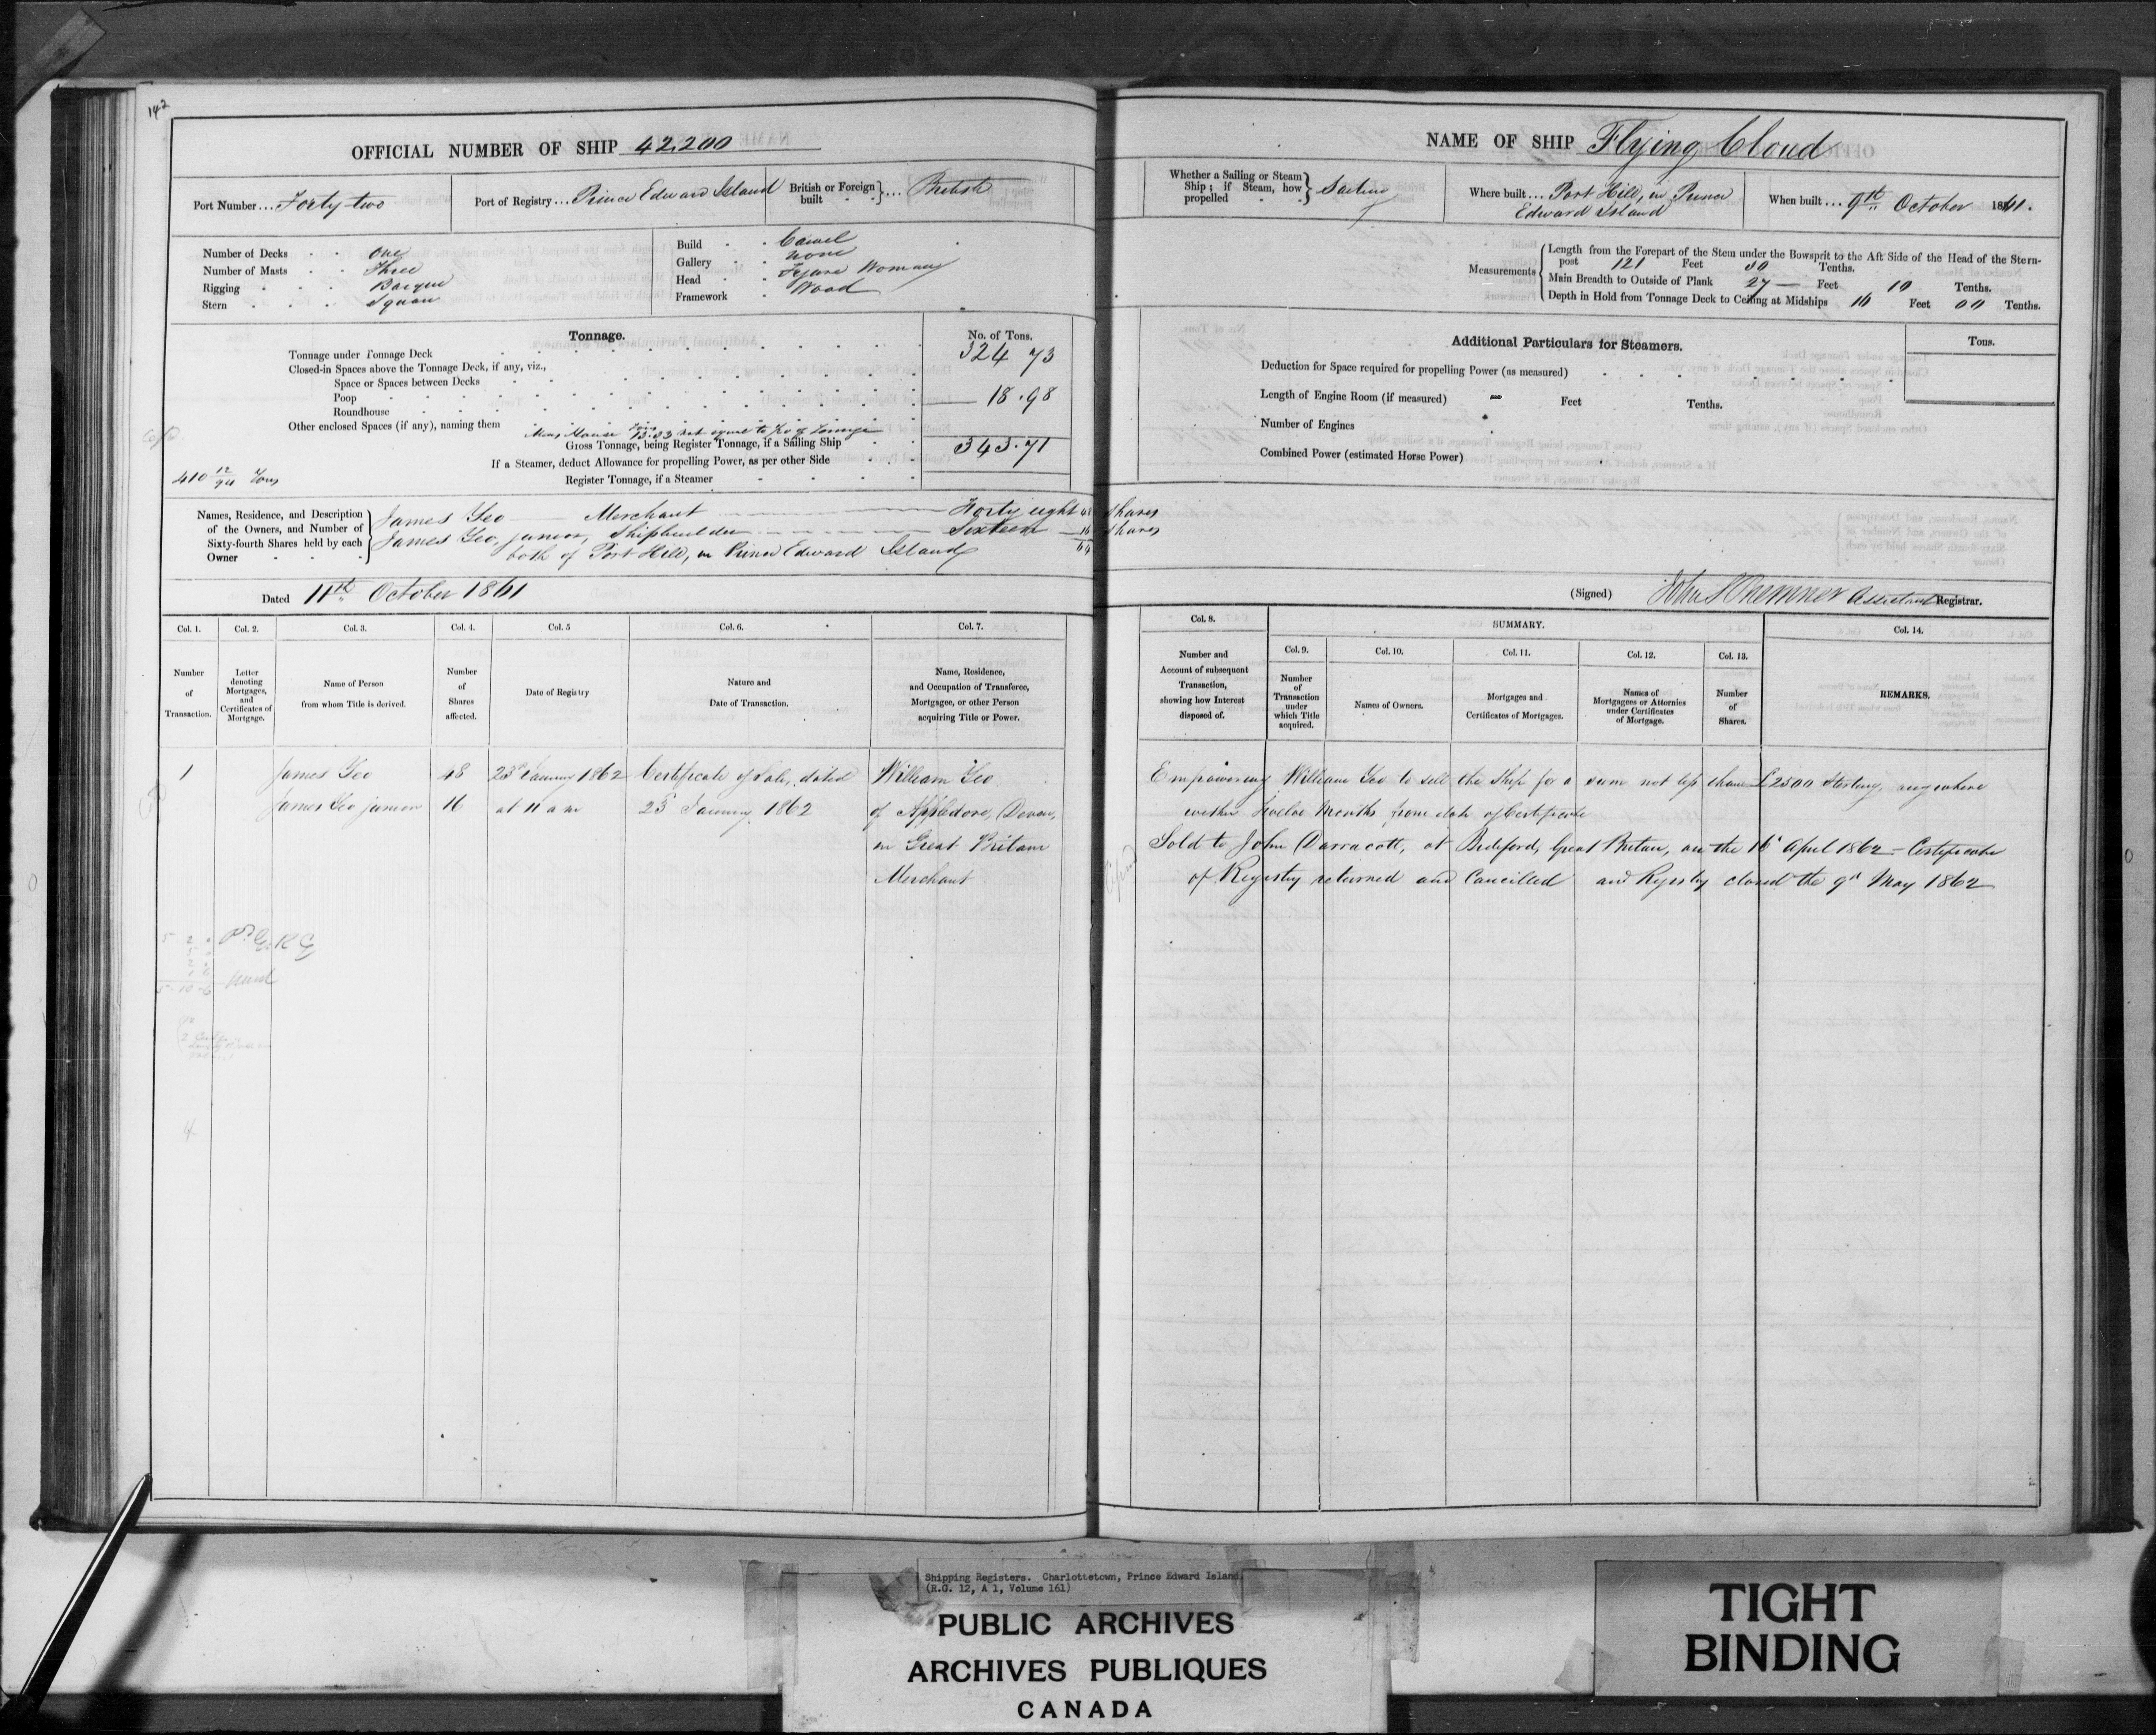 142
OFFICIAL NUMBER OF SHIP 42,200
Port Number... Forty-two
Port of Registry... Prince Edward Island
British or Foreign built } ... British
Number of Decks One
Number of Masts Three
Rigging Barque
Stern Square
Build Carvel
Gallery none
Head Figure Woman
Framework Wood
Tonnage.
No. of Tons.
Tonnage under Tonnage Deck 324 73
Closed-in Spaces above the Tonnage Deck, if any, viz.,
Space or Spaces between Decks
Poop 18.98
Roundhouse
Other enclosed Spaces (if any), naming them
Gross Tonnage, being Register Tonnage, if a Sailing Ship 343.71
If a Steamer, deduct Allowance for propelling Power, as per other Side
Register Tonnage, if a Steamer
410 12/94 Tons
Names, Residence, and Description of the Owners, and Number of Sixty-fourth Shares held by each Owner
James Yeo Merchant Forty eight 48 Shares
James Yeo, junior, Shipbuilder Sixteen 16 Shares
both of Port Hill, in Prince Edward Island 64
Dated 11th October 1861
Col. 1. Col. 2. Col. 3. Col. 4. Col. 5 Col. 6. Col. 7.
Number of Transaction.
Letter denoting Mortgages, and Certificates of Mortgage.
Name of Person from whom Title is derived.
Number of Shares affected.
Date of Registry
Nature and Date of Transaction.
Name, Residence, and Occupation of Transferee, Mortgagee, or other Person acquiring Title or Power.
1 James Yeo 48 23d January 1862 Certificate of Sale, dated William Yeo
James Yeo junior 16 at 11 a m 23d January 1862 of Appledore, Devon,
in Great Britain
Merchant
5-10-6
4
NAME OF SHIP Flying Cloud
Whether a Sailing or Steam Ship; if Steam, how propelled } Sailing
Where built... Port Hill, in Prince Edward Island
When built... 9th October 1861.
Measurements
Length from the Forepart of the Stem under the Bowsprit to the Aft Side of the Head of the Stern-
post 121 Feet 30 Tenths.
Main Breadth to Outside of Plank 27 — Feet 10 Tenths.
Depth in Hold from Tonnage Deck to Ceiling at Midships 16 Feet 00 Tenths.
Additional Particulars for Steamers.
Tons.
Deduction for Space required for propelling Power (as measured)
Length of Engine Room (if measured) - Feet Tenths.
Number of Engines
Combined Power (estimated Horse Power)
(Signed) John Assistant Registrar.
Col. 8. SUMMARY. Col. 14.
Col. 9. Col. 10. Col. 11. Col. 12. Col. 13.
Number and Account of subsequent Transaction, showing how Interest disposed of.
Number of Transaction under which Title acquired.
Names of Owners.
Mortgages and Certificates of Mortgages.
Names of Mortgagees or Attornies under Certificates of Mortgage.
Number of Shares.
REMARKS.
Empowering William Yeo to sell the Ship for a sum not less than £2500 Sterling, anywhere
within Twelve Months from date of Certificate
Sold to John Darracott, at Bideford, Great Britain, on the 16 April 1862 - Certificate
of Registry returned and Cancelled and Registry closed the 9th May 1862
Shipping Registers. Charlottetown, Prince Edward Island.
(R.G. 12, A 1, Volume 161)
PUBLIC ARCHIVES
ARCHIVES PUBLIQUES
CANADA
TIGHT
BINDING